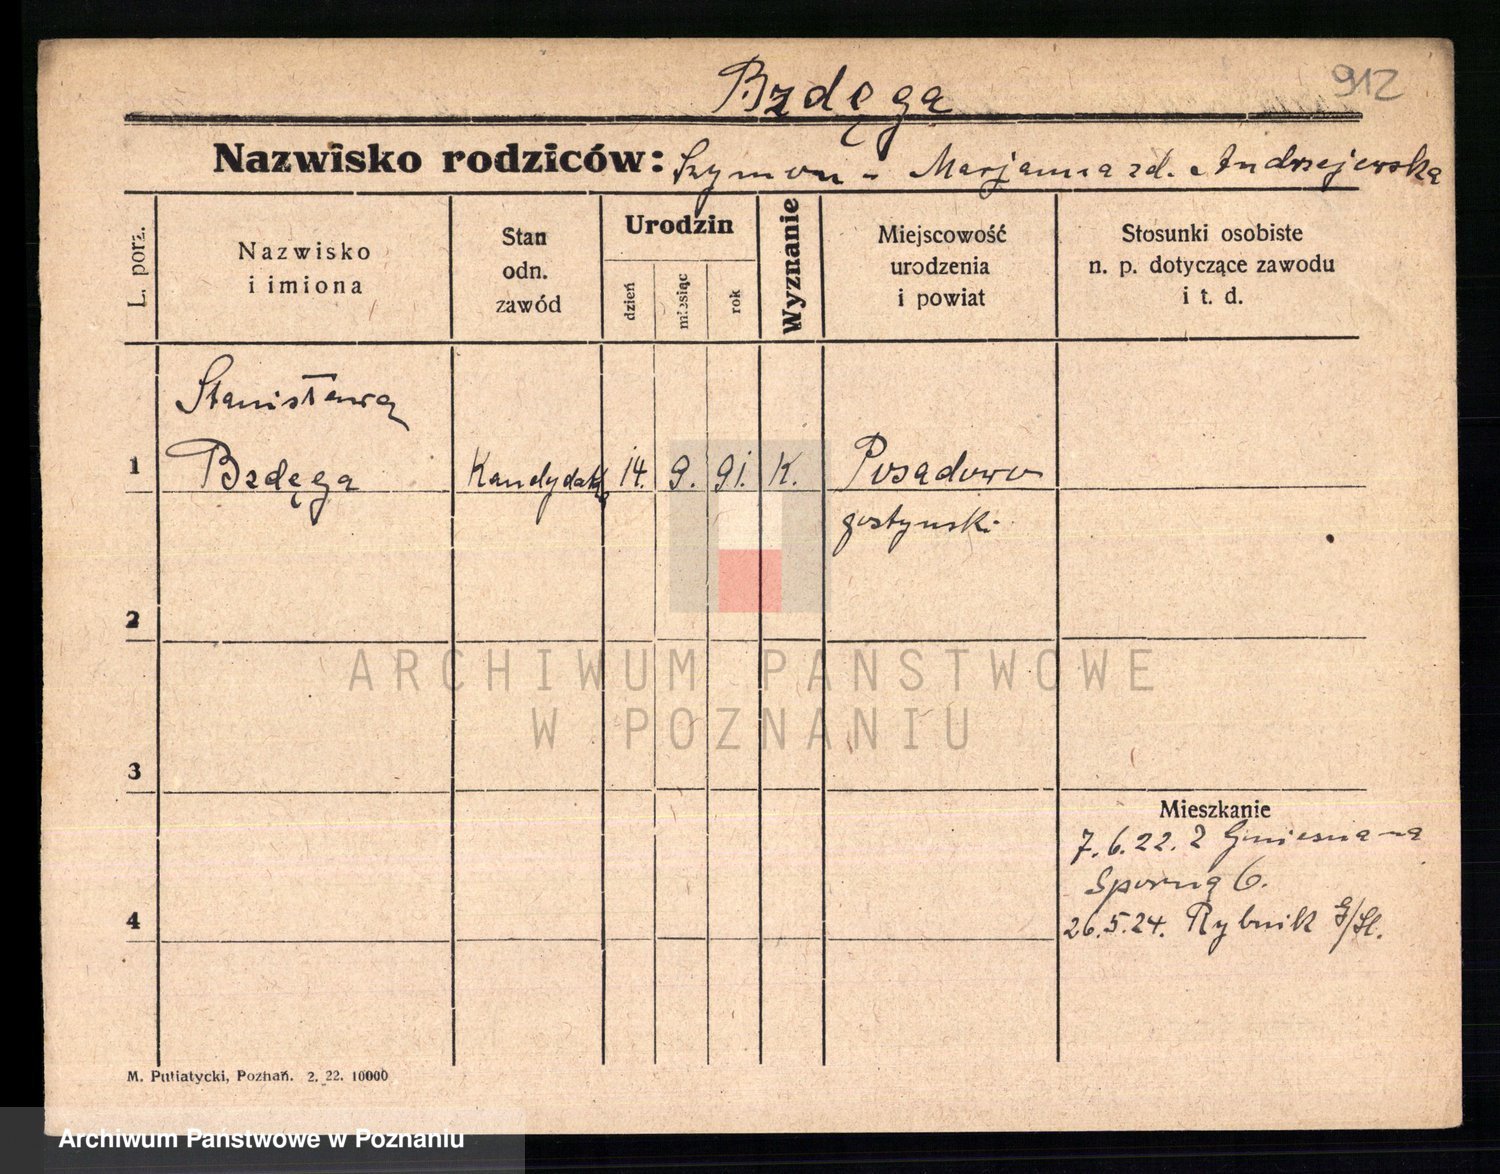 Bzdęga
912
Nazwisko rodziców: Szymon - Marjanna zd. Andrzejewska
L. porz.
Nazwisko
i imiona
Stan
odn.
zawód
Urodzin
dzień
miesiąc
rok
Wyznanie
Miejscowość
urodzenia
i powiat
Stosunki osobiste
n. p. dotyczące zawodu
i t. d.
Stanisława
1 Bzdęga Kandydatka 14. 9. 91. K. Posadowo
gostynski
2
3
4
ARCHIWUM PAŃSTWOWE
W POZNANIU
Mieszkanie
7.6.22. z Gniezna na
Sporną 6.
26.5.24. Rybnik G/Śl.
M. Putiatycki, Poznań. 2. 22. 10000
Archiwum Państwowe w Poznaniu